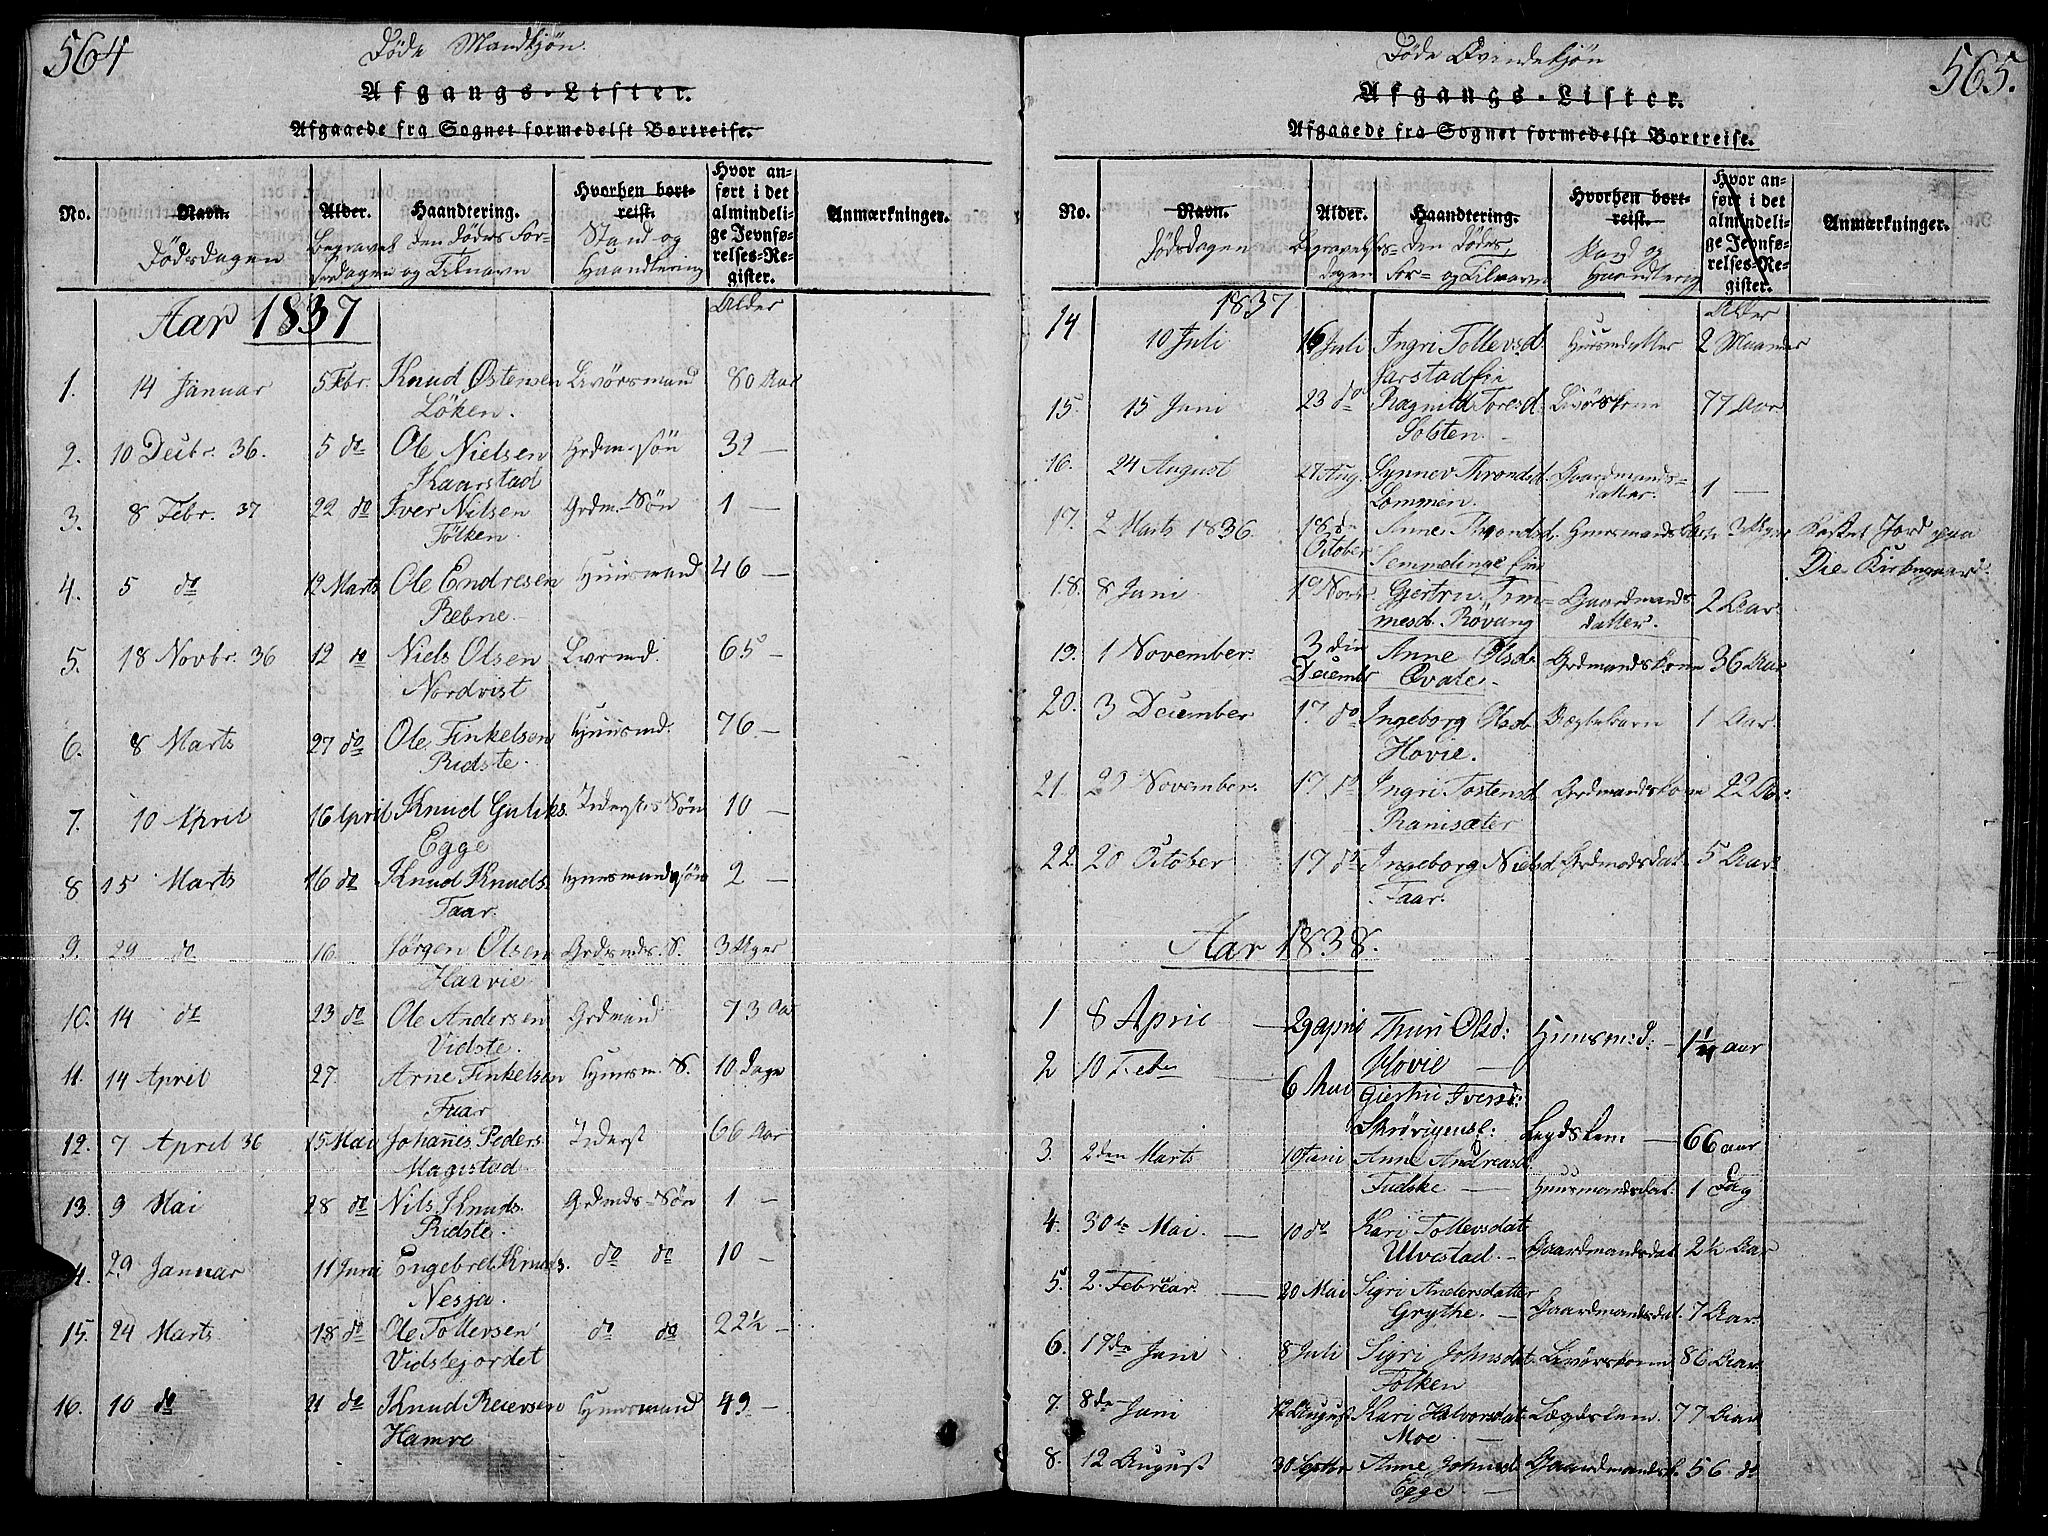 564
Døde Mandkjøn
Afgangs-Lister.
Afgaaede fra Sognet formedelst Bortreise.
No. Navn. Alder. Haandtering. Hvorhen bortreist. Hvor anført i det almindelige Jevnførelses-Register. Anmærkninger.
Dødsdagen Begravelsesdagen den Dødes For- og Tilnavn Stand og Haandtering Alder
Aar 1837
1. 14 Januar 5 Febr. Knud Østensen Livörsmand 80 Aar
Löken.
2. 10 Decbr. 36. 5 do Ole Nielsen Grdm. sön 32 —
Kaarstad
3. 8 Febr. 37 22 do Iver Nilsen Grdm. Sön 1 —
Tölken.
4. 5 do 12 Marts Ole Endresen Huusmand 46 —
Rebne
5. 18 Novbr. 36 12 do Niels Olsen Lvrmd. 65 —
Nordvist
6. 8 Marts 27 do Ole Finkelsen Huusmd. 76 —
Ridste.
7. 10 April 16 April Knud Guliks. Iderstes Sön 10 —
Egge
8 15 Marts 16 do Knud Knuds. Huusmandssön 2 —
Faar.
9. 29 do 16 Jørgen Olsen Grdmds. S. 3 Uger
Haavie
10. 14 do 23 do Ole Andersen Grdmand 73 Aar
Vidste.
11. 14 April 27 Arne Finkelsen Huusm. S. 10 Dage
Fuar
12. 7 April 36 15 Mai Johannes Peders. Iderst 66 Aar
Magistad
13. 9 Mai 28 do Nils Knuds. Grdmds. Sön 1 —
Ridste.
4. 29 Januar 11 Juni Engebret Knuds. do do 10 —
Nesja.
15. 24 Marts 18 do Ole Tollevsen do do 22½ —
Vidstejordet
16. 10 do 21 do Knud Reiersen Huusmand 49 —
Hamre
565.
Døde Qvindekjön
Afgangs-Lister.
Afgaaede fra Sognet formedelst Bortreise.
No. Navn. Alder. Haandtering. Hvorhen bortreist. Hvor anført i det almindelige Jevnførelses-Register. Anmærkninger.
Dødsdagen Begravelsesdagen den Dødes For- og Tilnavn Stand og Haandtering Alder
1837
14 10 Juli 16 Juli Ingri Tollevsd. Huusmdatter 2 Maaneder
Jarstad
15. 15 Juni 23 do Ragnild Toresd. Livörskone 77 Aar
Solsten
16. 24 August 27 Aug. Synnev Throndsd. Gaardmands- 1 —
Lommen. datter.
17. 2 Marts 1836 18 de Anne Throndsd. Huusmands 3 Uger kastet Jord paa
October Semmelinge Die Kirkegaard
18. 8 Juni 10 Novbr. Gjertru Tem- Gaardmands 2 Aar
mesd. Rövang datter.
19. 1 November. 3 die Anne Olsd. Grdmandskone 36 Aar
December Qvale
20. 3 December 17. do Ingeborg Olsd. Uægtebarn 1 Aar
Hovie.
21. 23 November. 17. do Ingri Tostensd. Grdmandskone 22 Aar
Ranisæter
22. 20 October 17 do Ingeborg Nielsd. Grdmdsdat. 5 Aar
Faar.
Aar 1838.
1 8 April — 29 april Thuri Olsd: Huusm:d: — 1¼ aar
Hovie
2 10 Febr 6 Mai Giertru Iversd:
Skrövigensl: Legdslem — 66 aar
3. 2den Marts 10 Juni Anne Andreasd.
Fudske — Huusmandsdat. 1 Dag
4. 30te Mai. — 10 do Kari Tollevsdat.
Ulvestad. — Gaardmandsdat. 2½ Aar
5. 2. Februar. — 20 Mai Sigri Andersdatter
Grythe. — Gaardmandsdat. 7 Aar
6. 19de Juni 8 Juli Sigri Johnsdat. Livörskone 86 Aar
Tolken
7. 8de Juni 12 August Kari Halvorsdat. Lægdslem. 77 Aar
Moe
8. 12 August 30 Septbr Anne Johnsd. Gaardmandsk. 56 do
Egge —